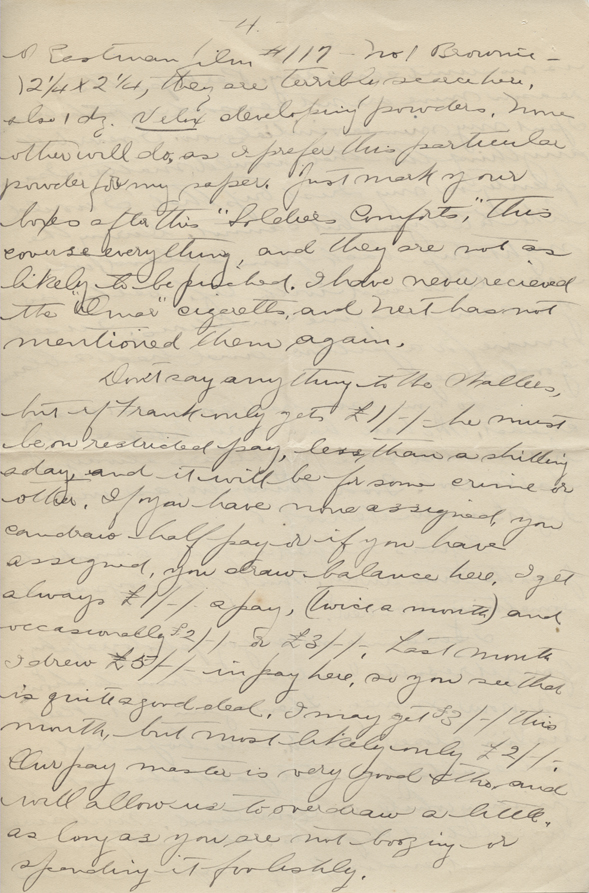 4.
of Eastman film #117 - No 1 Brownie -
)2¼ x 2¼, they are terribly scarce here,
also 1 dz. Velox developing powders. None
other will do, as I prefer this particular
powder for my paper. Just mark your
boxes after this "Soldiers Comforts," this
coverse everything, and they are not as
likely to be pinched. I have never recieved
the "Omar" cigeretts, and Nert has not
mentioned them again.
Don't say anything to the Wallers,
but if Frank only gets £1/-/- he must
be on restricted pay, less than a shilling
a day, and it will be for some crime or
other. If you have none assigned, you
can draw half pay or if you have
assigned, you draw balance here. I get
always £1/-/- a pay, (twice a month) and
occasionally £2/-/- or £3/-/-. Last month
I drew £5/-/- in pay here, so you see that
is quite a good deal. I may get £3/-/- this
month, but most likely only £2/-/-.
Our pay master is very good tho, and
will allow us to overdraw a little,
as long as you are not boozing or
spending it foolishly.